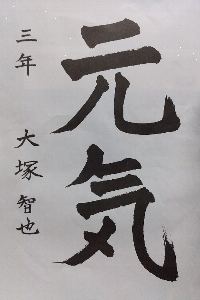 元気
三年
大塚智也